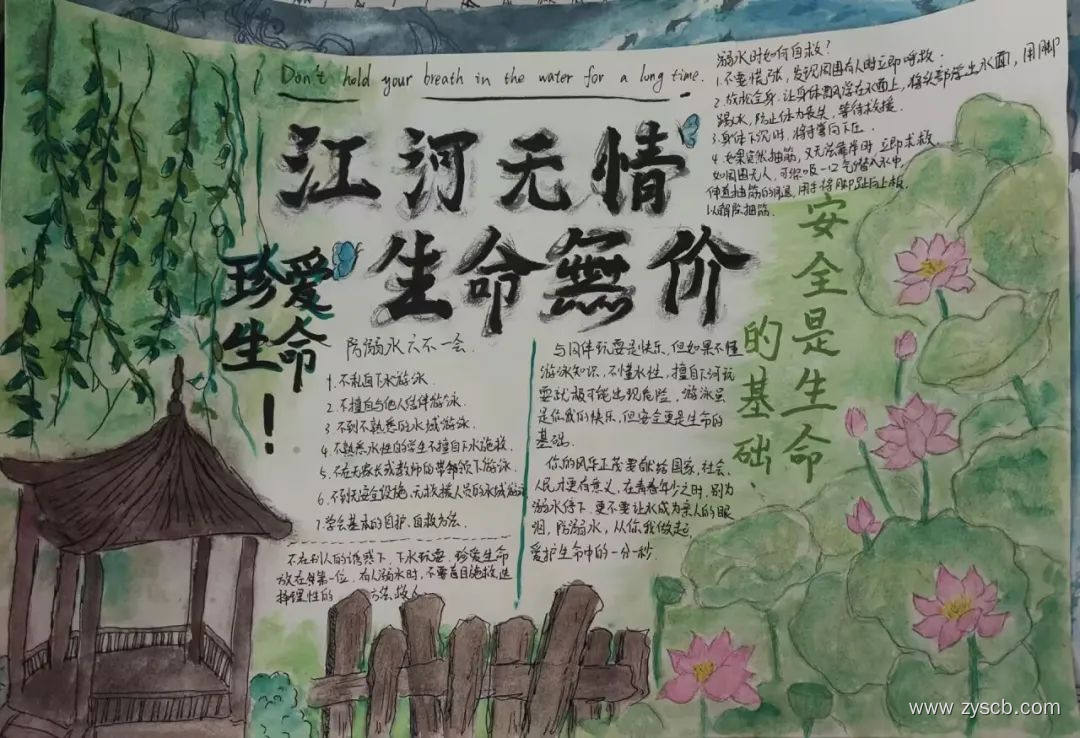 Don't hold your breath in the water for a long time.
江河无情
生命無价
珍爱
生命
！
溺水时如何自救？
1.不要慌张，发现周围有人时立即呼救.
2.放松全身，让身体飘浮在水面上，将头部浮出水面，用脚
踢水，防止体力丧失，等待救援.
3.身体下沉时，将手掌向下压.
4.如果突然抽筋，又无法靠岸时，立即求救
如周围无人，可深吸一口气潜入水中，
伸直抽筋的那条腿，用手将脚趾向上扳，
以解除抽筋.
安全是生命
的基础
防溺水六不一会.
1.不私自下水游泳.
2.不擅自与他人结伴游泳.
3.不到不熟悉的水域游泳.
4.不熟悉水性的学生不擅自下水施救.
5.不在无家长或教师的带领下游泳.
6.不到无安全设施、无救援人员的水域游泳
7.学会基本的自护、自救方法.
不在别人的诱惑下下水玩耍，珍爱生命
放在第一位，有人溺水时，不要盲目施救，选
择理性的 方法救人
与同伴玩耍是快乐，但如果不懂
游泳知识，不懂水性，擅自下河玩
耍就极可能出现危险，游泳虽
是你我的快乐，但安全更是生命的
基础.
你的风华正茂要献给国家，社会，
人民才更有意义，在青春年少之时，别为
溺水停下，更不要让水成为亲人的眼
泪，防溺水，从你我做起，
爱护生命中的一分一秒.
www.zyscb.com